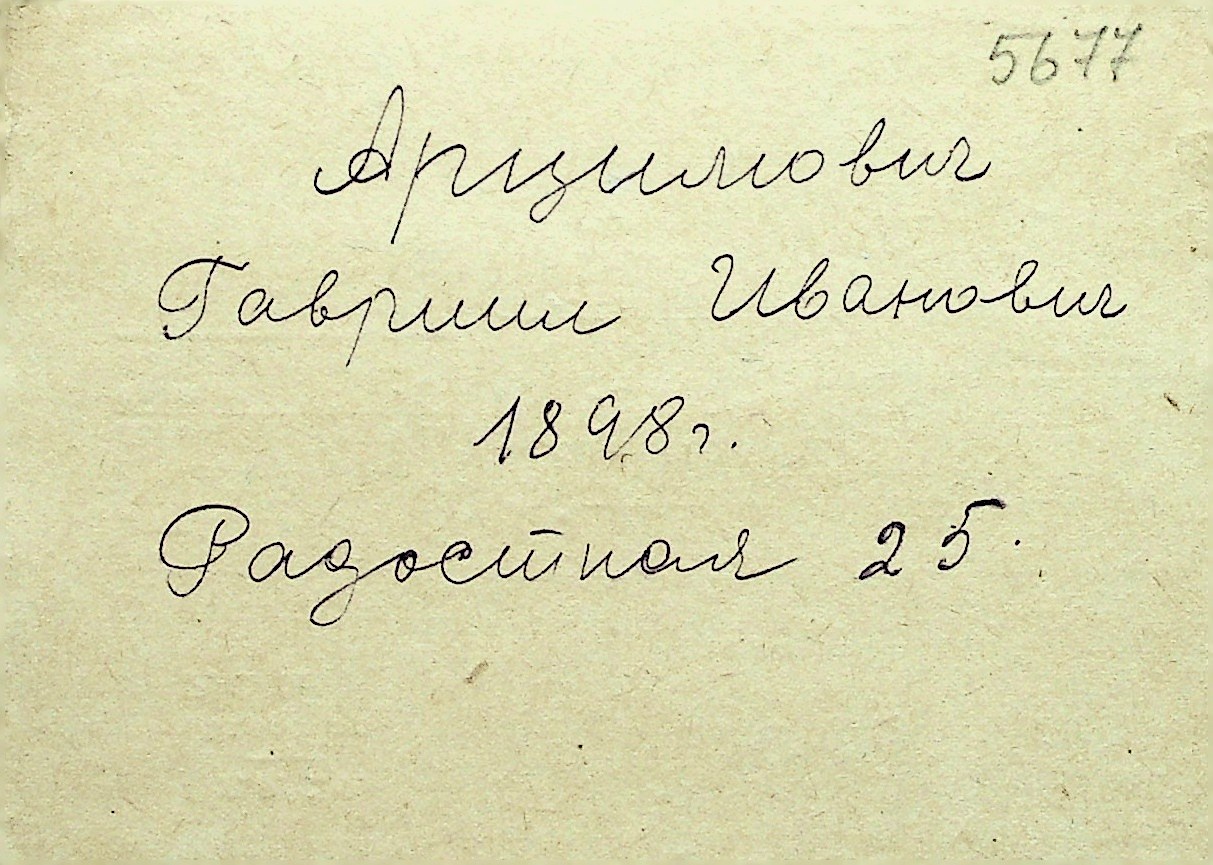 5677
Арцимович
Гавриил Иванович
1898 г.
Радостная 25.